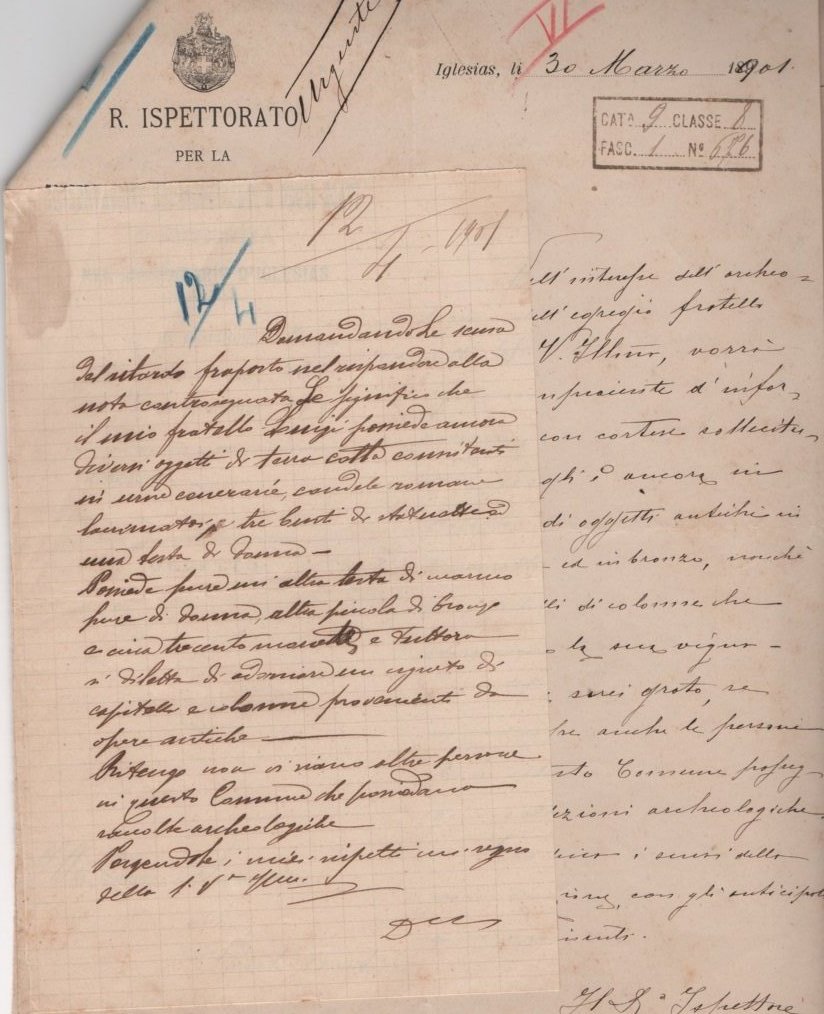 Urgente
VI
Iglesias, li 30 Marzo 1901.
R. ISPETTORATO
PER LA
CATA 9 CLASSE 8
FASC. 1 Nº 526
12/4 - 1901
12/4
Domandandole scusa
del ritardo fraposto nel rispondere alla
nota controsegnata Le significo che
il mio fratello Luigi possiede ancora
diversi oggetti di terra cotta consistenti
in urne cenerarie, candele romane
lacrimatoi, tre busti di statuette ed
una testa di donna -
Possiede pure un altra testa di marmo
pure di donna, altra piccola di bronzo
e circa trecento monete e tuttora
si diletta di adornare un vigneto di
capitelli e colonne provenienti da
opere antiche
Ritengo non vi siano altre persone
in questo Comune che possedano
raccolte archeologiche
Porgendole i miei rispetti mi segno
della S. V. Ill.
ell' interesse dell' archeo=
ell' egregio fratello
V. Ill, vorrà
d' infor,
con cortese sollecitu-
gli è ancora in
di oggetti antichi in
ed in bronzo, nonchè
di colonne che
la sua vigna -
sarei grato, se
anche le persone
sto Comune posseg-
lezioni archeologiche.
i sensi della
con gli anticipati
menti.
Il R.º Ispettore